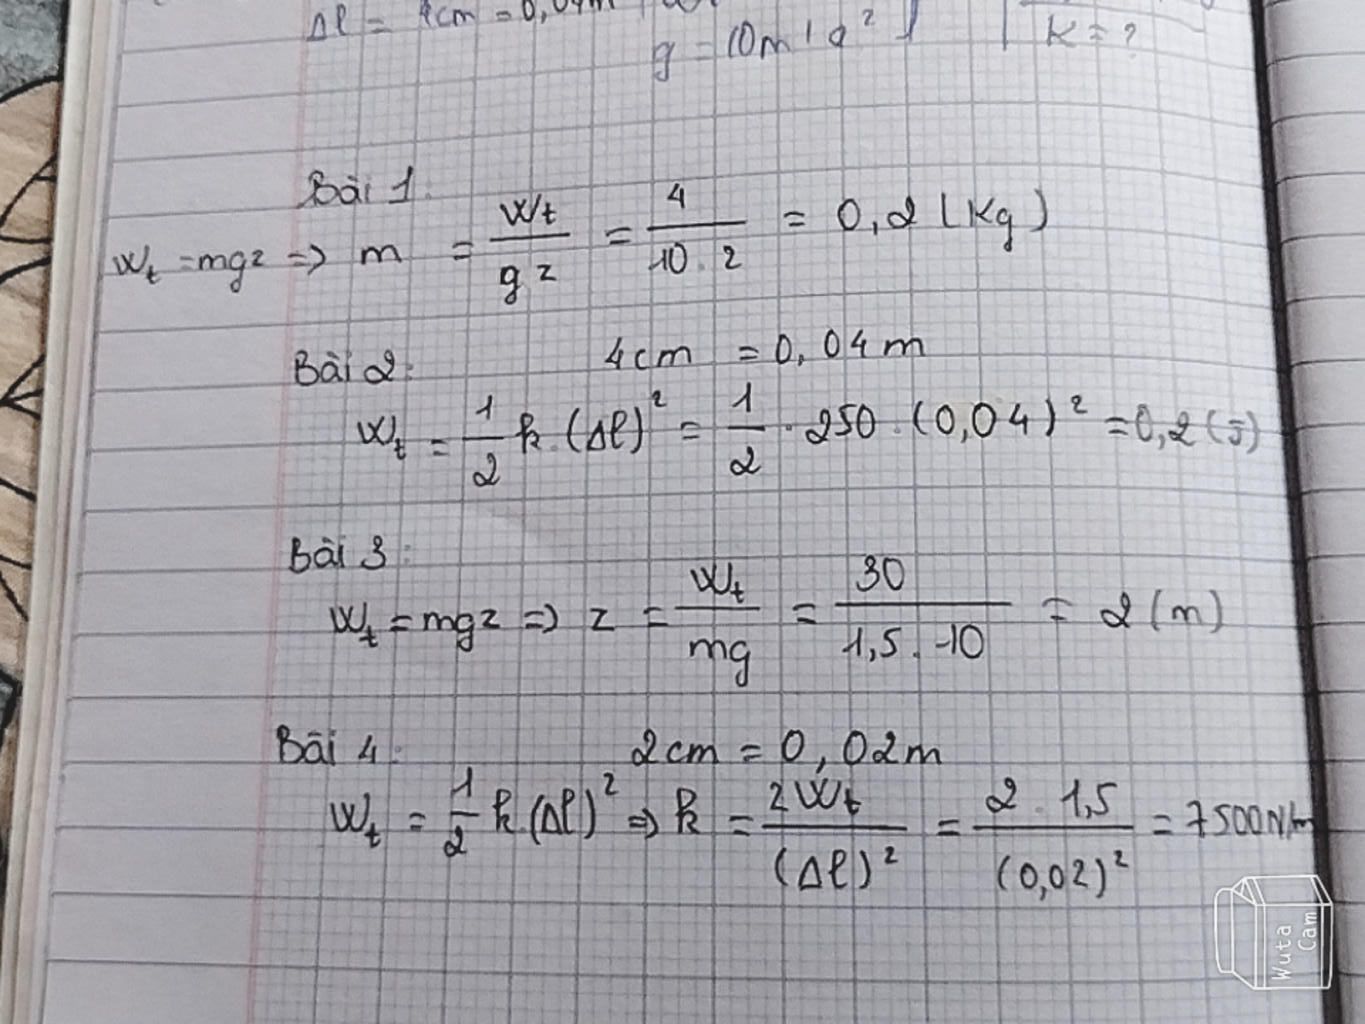 Δl = 4cm = 0,04m
g = 10m/s²
K = ?
Bài 1:
Wt = mgz => m = Wt / gz = 4 / 10 . 2 = 0,2 (Kg)
Bài 2: 4cm = 0,04m
Wt = 1/2 k.(Δl)² = 1/2 . 250 . (0,04)² = 0,2 (J)
Bài 3:
Wt = mgz => z = Wt / mg = 30 / 1,5 . 10 = 2 (m)
Bài 4: 2cm = 0,02m
Wt = 1/2 k.(Δl)² => k = 2Wt / (Δl)² = 2 . 1,5 / (0,02)² = 7500N/m
Wuta
Cam